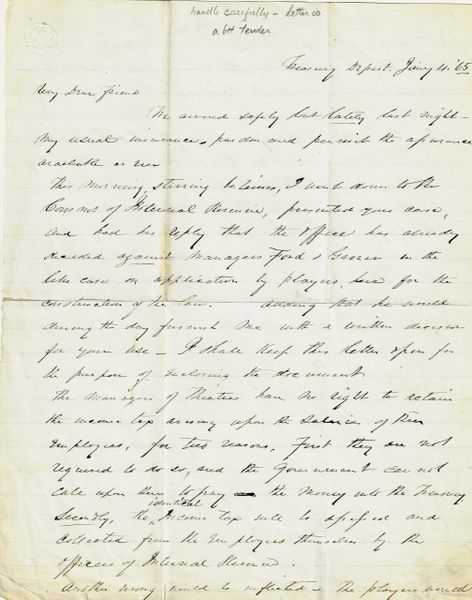 handle carefully - letter is
a bit tender
Treasury Depart. Jany 4. '65
My Dear Friend
We arrived safely but lately last night -
my usual insurance, pardon and permit the
available
This morning, stirring betimes, I went down to the
Commr of Internal Revenue, presented your case,
and had his reply that the office has already
decided against Managers Ford & Grover in the
like case on application by players, here for the
construction of the law. adding that he would
during the day furnish me with a written decision
for your use - I shall keep this letter open for
the purpose of enclosing the document
The Managers of theatres have no right to retain
the income tax arising upon the salaries of their
Employees, for two reasons, First they are not
required to do so, and the Government can not
call upon them to pay the money into the Treasury
Secondly, the identical Income tax will be assessed and
collected from the Employees themselves by the
officers of Internal Revenue.
Another wrong would be inflicted - The players would